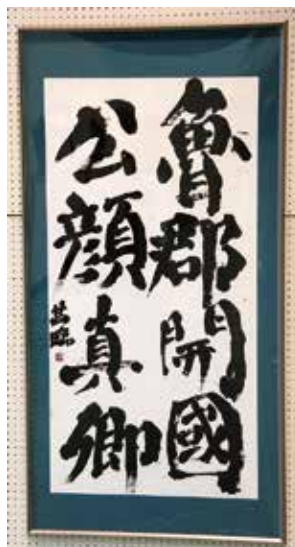 魯郡開國
公顔真卿